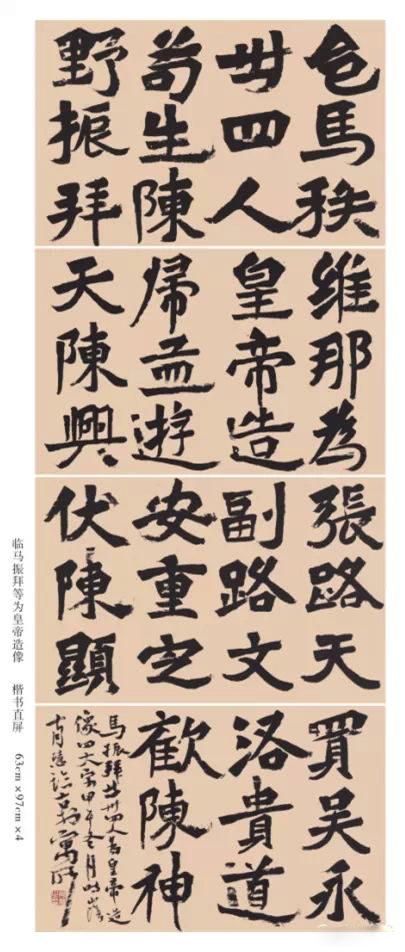 馬秩
卅四人
苟生陳
野振拜
維那為
皇帝造
歸孟遊
天陳興
張路天
副路文
安重定
伏陳顯
買吳永
洛貴道
歡陳神
馬振拜卅四人為皇帝造
像四大字甲午
临马振拜等为皇帝造像 楷书直屏 63cm×97cm×4